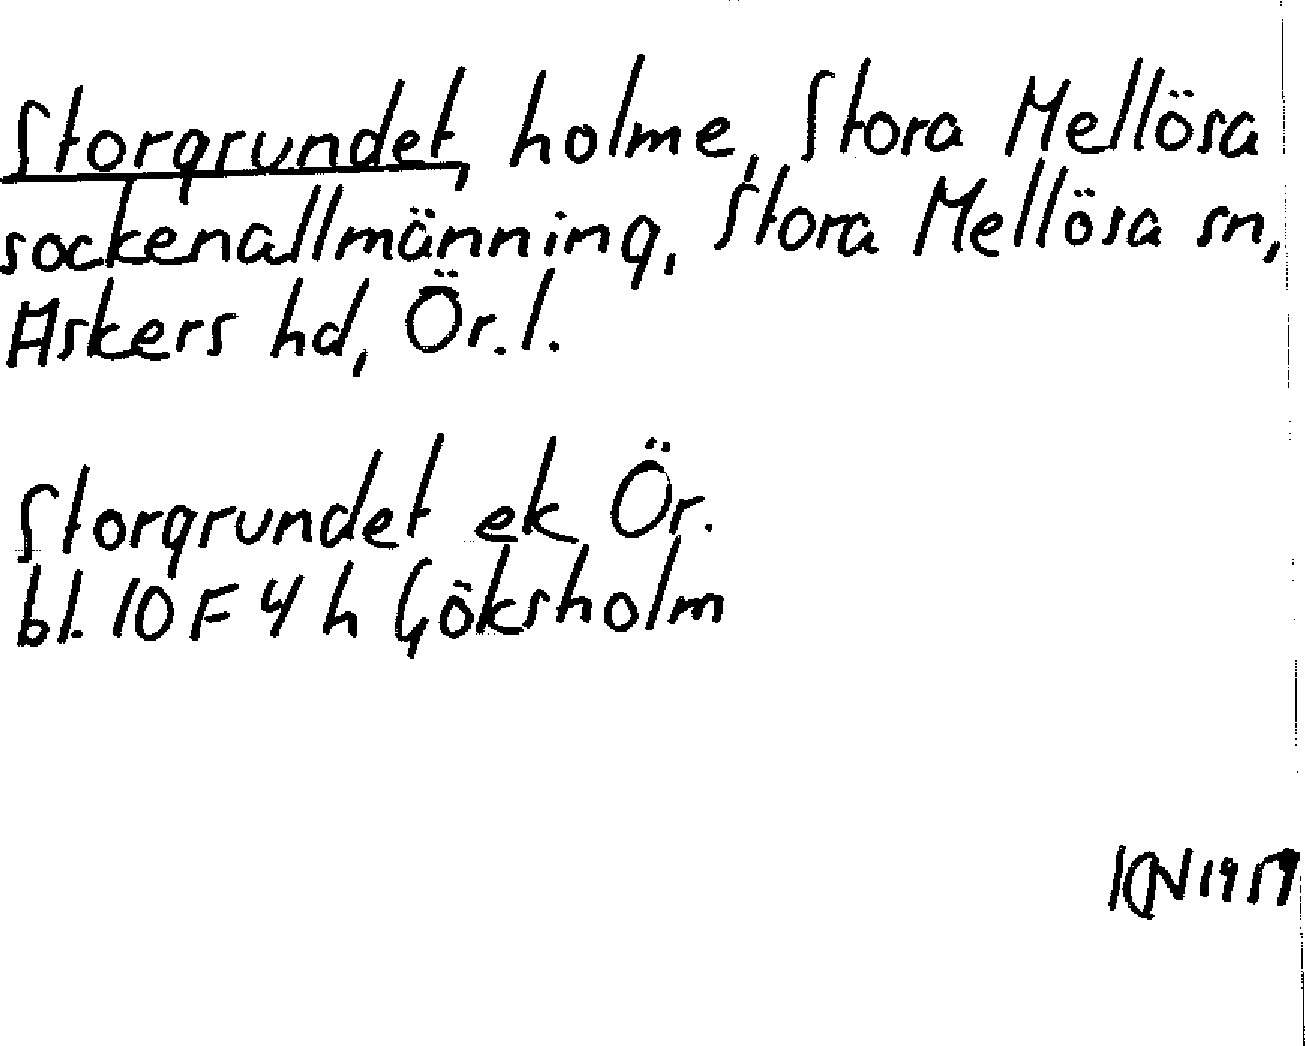 Storgrundet, holme, Stora Mellösa
sockenallmänning, Stora Mellösa sn,
Askers hd, Ör. l.
Storgrundet ek Ör.
bl. 10 F 4 h Göksholm
1959